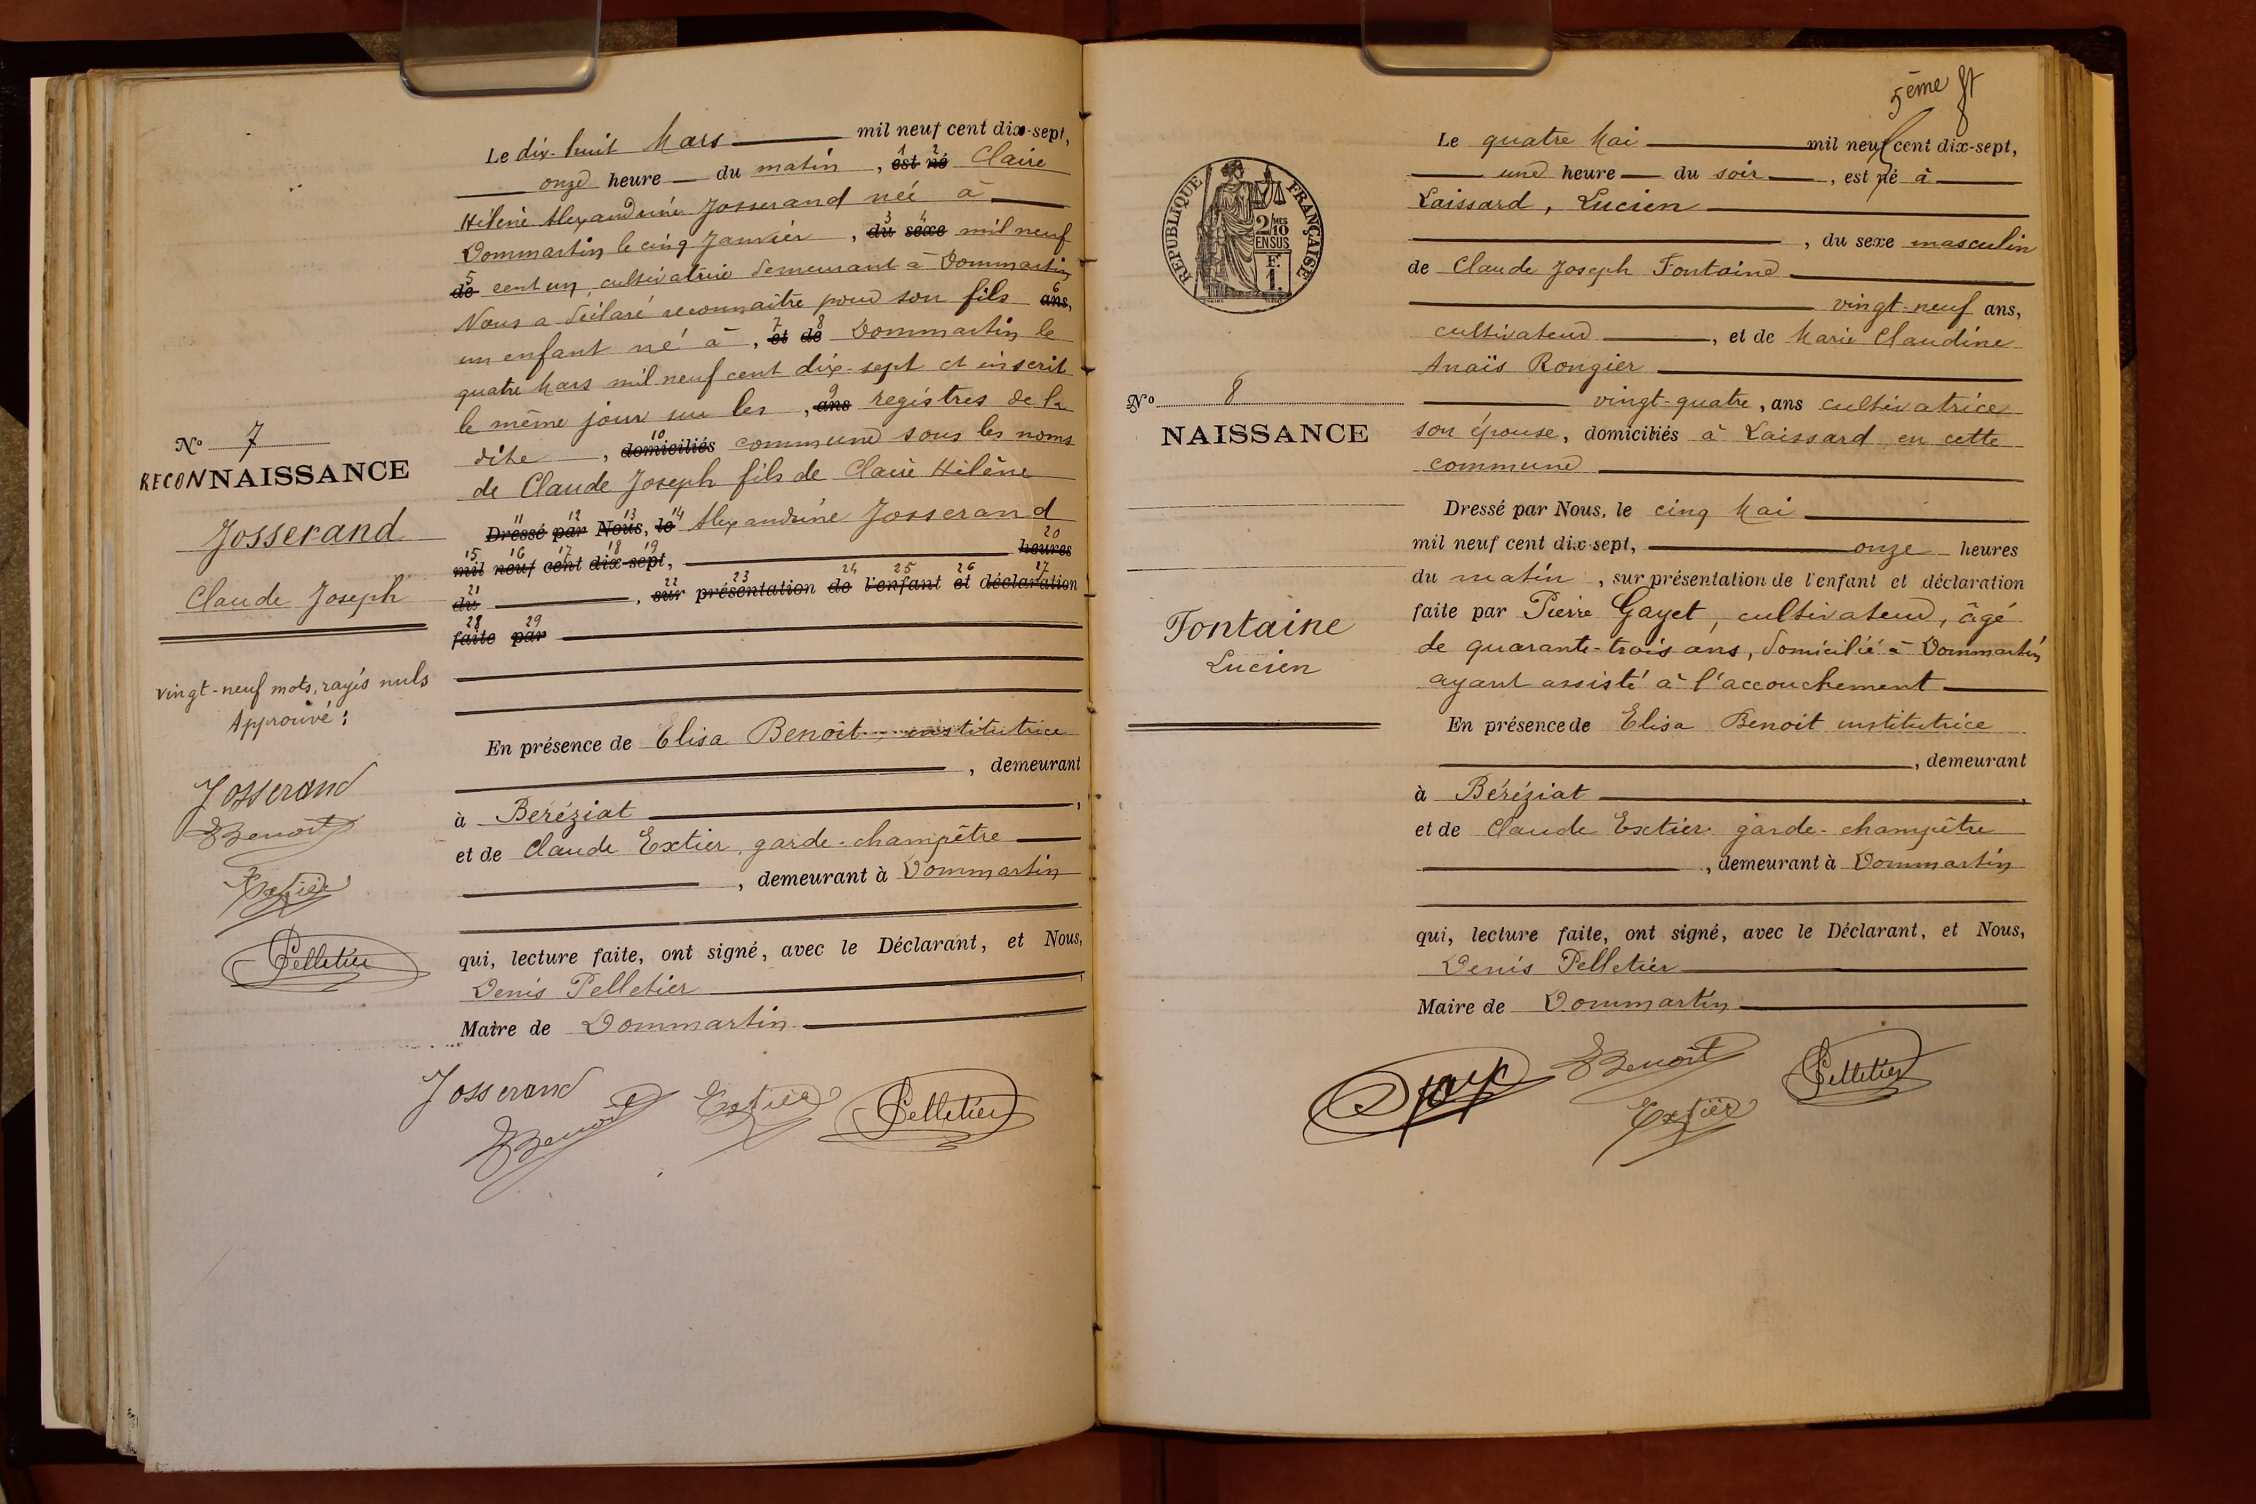 Le dix-huit Mars mil neuf cent dix-sept,
onze heure du matin, est 1 né 2 Claire
Hélène Alexandrine Josserand née à
Dommartin le cinq Janvier, du 3 sexe 4 mil neuf
de 5 cent un, cultivatrice demeurant à Dommartin
Nous a déclaré reconnaître pour son fils ans, 6
un enfant né à, et 7 de 8 Dommartin le
quatre Mars mil neuf cent dix-sept et inscrit
le même jour sur les, ans 9 registres de la
dite, domiciliés 10 commune sous les noms
de Claude Joseph fils de Claire Hélène
Dressé 11 par 12 Nous 13, le 14 Alexandrine Josserand
mil 15 neuf 16 cent 17 dix 18-sept 19, heures 20
du 21, sur 22 présentation 23 de 24 l'enfant 25 et 26 déclaration 27
faite 28 par 29
En présence de Elisa Benoît, institutrice
, demeurant
à Beréziat,
et de Claude Extier, garde-champêtre
, demeurant à Dommartin
qui, lecture faite, ont signé, avec le Déclarant, et Nous,
Denis Pelletier,
Maire de Dommartin
Josserand
EBenoît
Extier
Pelletier
No 7
RECONNAISSANCE
Josserand
Claude Joseph
vingt-neuf mots, rayés nuls
Approuvé :
Josserand
EBenoît
Extier
Pelletier
5ème ft
Le quatre Mai mil neuf cent dix-sept,
une heure du soir, est né à
Laissard, Lucien
, du sexe masculin
de Claude Joseph Fontaine
vingt-neuf ans,
cultivateur, et de Marie Claudine
Anaïs Rongier
vingt-quatre, ans cultivatrice
son épouse, domiciliés à Laissard en cette
commune
Dressé par Nous, le cinq Mai
mil neuf cent dix-sept, onze heures
du matin, sur présentation de l'enfant et déclaration
faite par Pierre Gayet, cultivateur, âgé
de quarante-trois ans, domicilié à Dommartin
ayant assisté à l'accouchement
En présence de Elisa Benoit institutrice
, demeurant
à Béréziat,
et de Claude Extier garde-champêtre
, demeurant à Dommartin
qui, lecture faite, ont signé, avec le Déclarant, et Nous,
Denis Pelletier
Maire de Dommartin
EBenoît
Pelletier
Extier
RÉPUBLIQUE FRANÇAISE
2/10 MES
EN SUS
F.
1.
No 8
NAISSANCE
Fontaine
Lucien